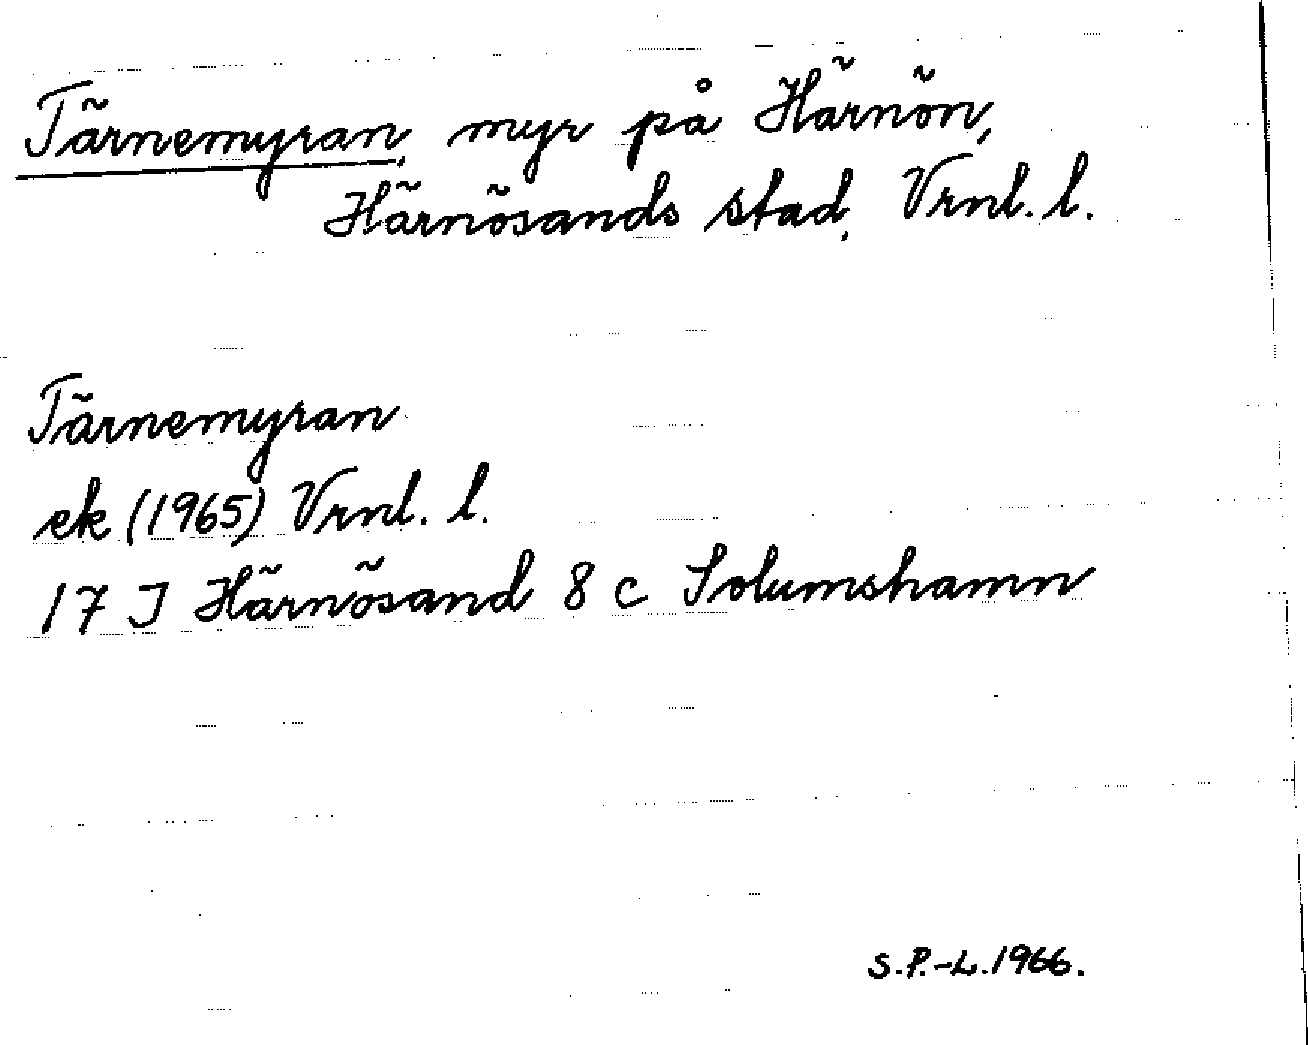 Tärnemyran, myr på Härnön,
Härnösands stad, Vrnl. l.
Tärnemyran
ek (1965) Vrnl. l.
17 J Härnösand 8 c Solumshamn
S.P.-L. 1966.